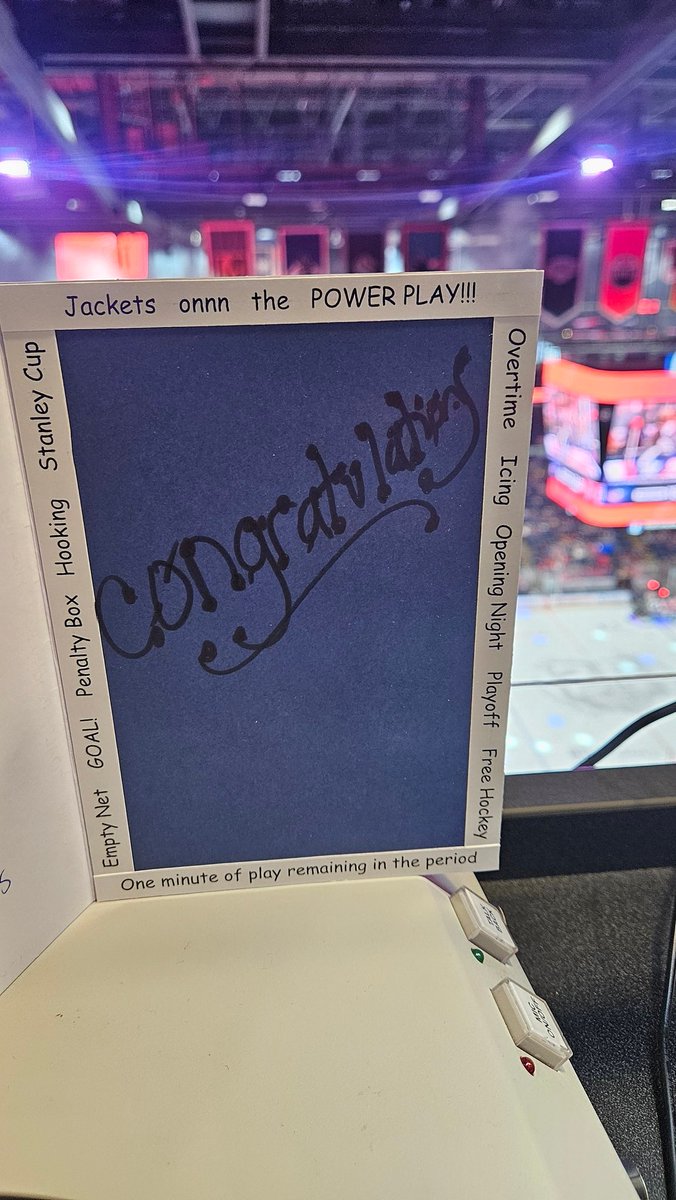 Jackets onnn the POWER PLAY!!!
Empty Net GOAL! Penalty Box Hooking Stanley Cup
Congratulations
Overtime Icing Opening Night Playoff Free Hockey
One minute of play remaining in the period